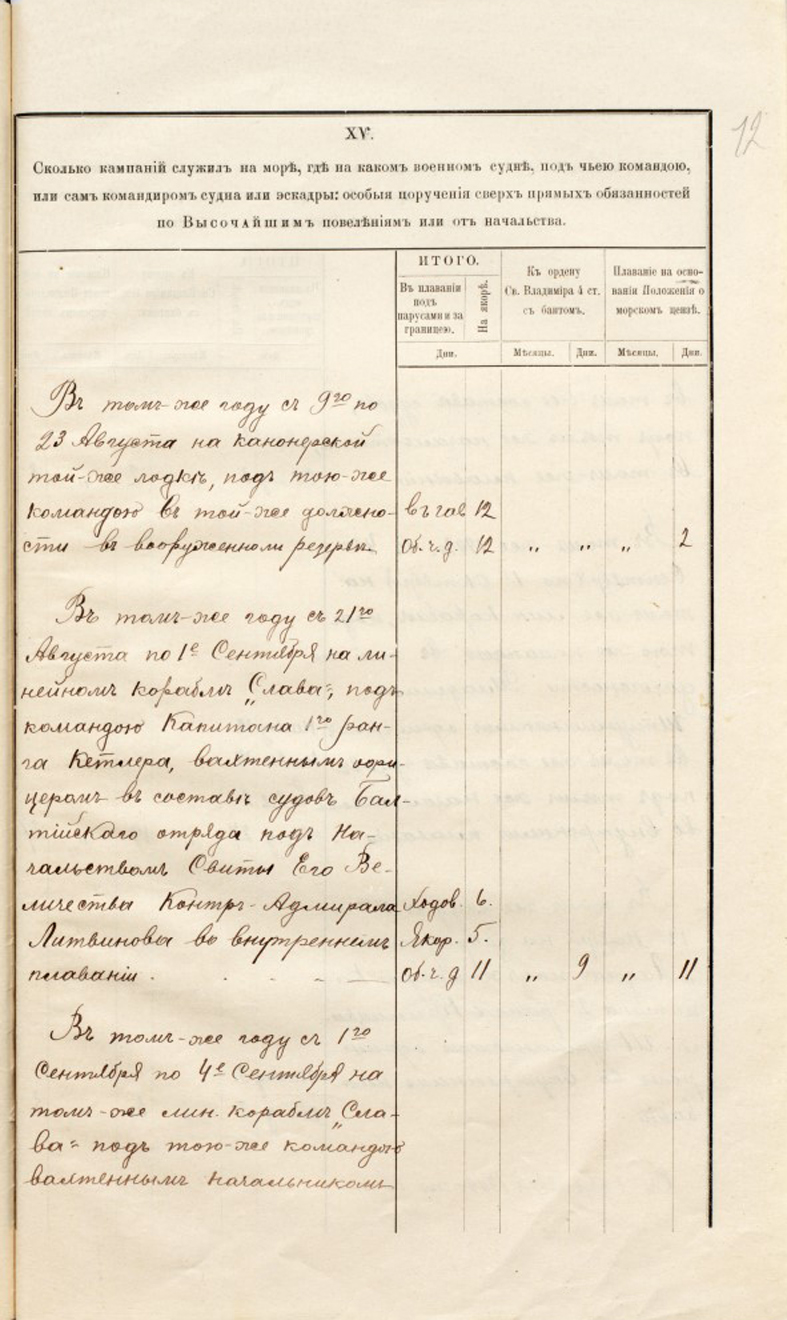 12
XV.
Сколько кампаній служилъ на морѣ, гдѣ на какомъ военномъ суднѣ, подъ чьею командою,
или самъ командиромъ судна или эскадры: особыя порученія сверхъ прямыхъ обязанностей
по Высочайшимъ повелѣніямъ или отъ начальства.
ИТОГО.
Въ плаваніи
подъ
парусами и за
границею.
На якорѣ.
Къ ордену
Св. Владиміра 4 ст.
съ бантомъ.
Плаваніе на осно-
ваніи Положенія о
морскомъ цензѣ.
Дни.
Мѣсяцы.
Дни.
Мѣсяцы.
Дни.
Въ томъ-же году съ 9го по
23 Августа на канонерской
той-же лодкѣ, подъ тою-же
командою въ той-же должно- 12
сти въ вооруженномъ резервѣ. Об.ч.д. 12 „ „ „ 2
Въ томъ-же году съ 21го
Августа по 1е Сентября на ли-
нейномъ кораблѣ „Слава“, подъ
командою Капитана 1го ран-
га Кетлера, вахтеннымъ офи-
церомъ въ составѣ судовъ Бал-
тійскаго отряда подъ На-
чальствомъ Свиты Его Ве-
личества Контръ-Адмирала Ходов. 6.
Литвинова во внутреннемъ Якор. 5.
плаваніи. Об.ч.д 11 „ 9 „ 11
Въ томъ-же году съ 1го
Сентября по 4е Сентября на
томъ-же лин. кораблѣ „Сла-
ва“ подъ тою-же командою
вахтеннымъ начальникомъ